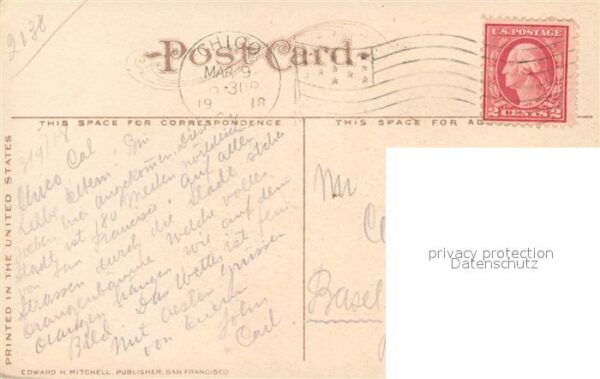 2138
Post Card
CHICO
MAR 9
19 18
U.S. POSTAGE
2 CENTS 2
THIS SPACE FOR CORRESPONDENCE
THIS SPACE FOR AD
PRINTED IN THE UNITED STATES
3/9/18
Chico Cal
Liebe Eltern! Bin
soeben hier angekommen. Diese
Stadt ist 180 Meilen nördlich
von San Francisco. Auf allen
Strassen durch die Stadt stehen
Orangenbäume welche voller
Orangen hangen wie auf dem
Bild. Das Wetter ist fein
Mit besten Grüssen
von Eurem
Sohn
Carl
Basel
privacy protection
Datenschutz
EDWARD H. MITCHELL, PUBLISHER, SAN FRANCISCO